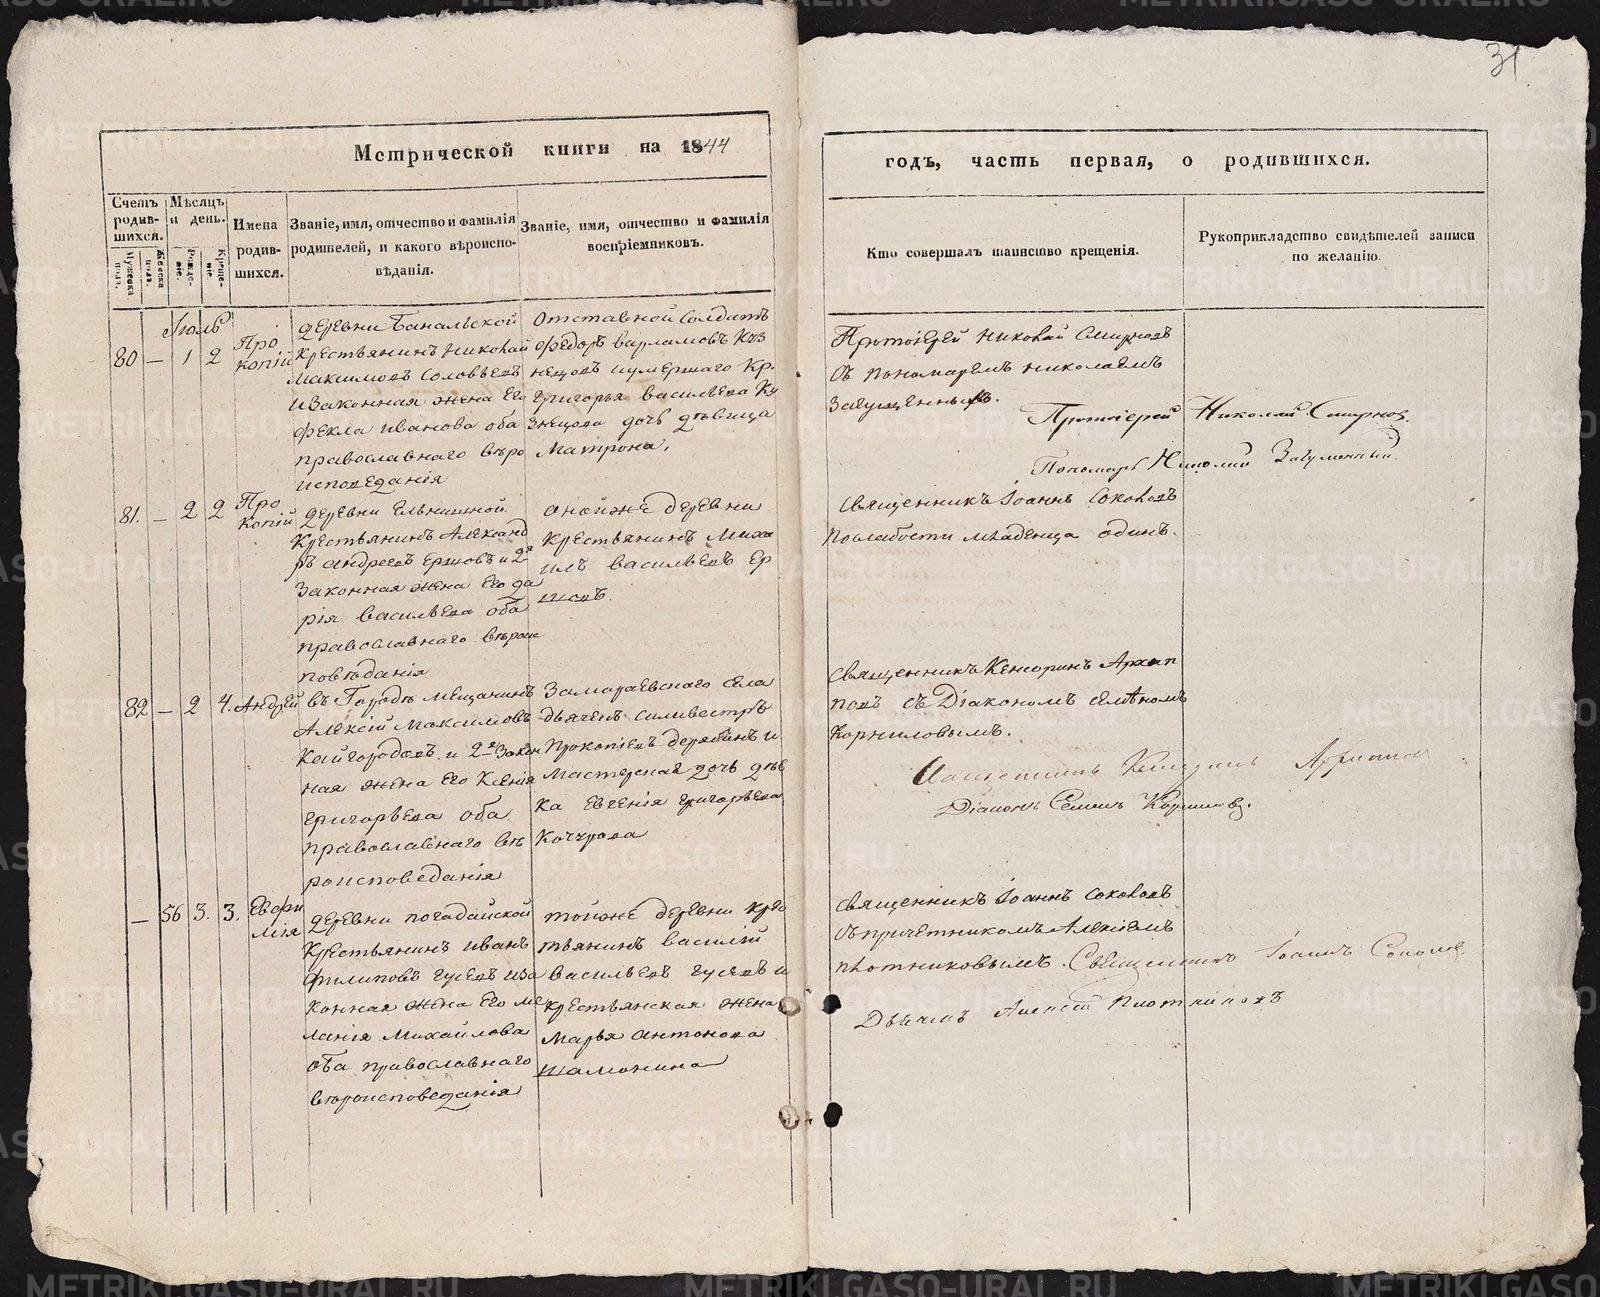 31
Метрической книги на 1844
годъ, часть первая, о родившихся.
Счетъ родив-шихся.
Мужеска пола.
Женска пола.
Мѣсяцъ и день.
Рожде-нie.
Креще-нie.
Имена родив-шихся.
Званіе, имя, отчество и фамилія
родителей, и какого вѣроиспо-
вѣданія.
Званіе, имя, отчество и фамилія
воспріемниковъ.
Кто совершалъ таинство крещенія.
Рукоприкладство свидѣтелей записи
по желанію.
Іюль
80 — 1 2
Про
копій
деревни
крестьянинъ Николай
Максимовъ Соловьевъ
и законная жена его
Фекла Иванова оба
православнаго вѣро
исповеданія
Отставной Солдатъ
Федоръ Варламовъ Куз
нецовъ и умершаго Кр.
Григорья Васильева Ку
знецова дочь дѣвица
Матрона.
Протоіерей Николай Смирновъ
съ пономаремъ Николаемъ
Загуменнымъ.
Протоіерей Николай Смирновъ.
Пономарь Николай Загуменный.
81. — 2 2
Про
копій
деревни Ельничной
крестьянинъ Александ
ръ Андреевъ Ершовъ и 2я
законная жена его Да
рія Васильева оба
православнаго вѣрои
повѣданія
оной же деревни
крестьянинъ Миха
илъ Васильевъ Ер
шовъ.
Священникъ Іоаннъ Соколовъ
по слабости младенца одинъ.
82 — 2 4.
Андрей
въ Городѣ мещанинъ
Алексій Максимовъ
Кайгородовъ и 2я закон
ная жена его Ксенія
Григорьева оба
православнаго вѣ
роисповеданія
Замараевскаго села
дьячекъ Силивестръ
Прокопіевъ Дерябинъ и
мастерская дочь дѣв
ка Евгенія Григорьева
Священникъ Кенсоринъ Архип
повъ съ Діакономъ Семѣномъ
Корниловымъ.
Священникъ Кенсоринъ
Діаконъ Семенъ Корниловъ.
— 56 3. 3.
Евфи
мія
деревни
крестьянинъ Иванъ
Филиповъ Гусевъ и за
конная жена его Ме
ланія Михайлова
оба православнаго
вѣроисповеданія
той же деревни крес
тьянинъ Василій
Васильевъ Гусевъ и
крестьянская жена
Марья Антонова
Шамонина
Священникъ Іоаннъ Соколовъ
съ причетникомъ Алексіемъ
Плотниковымъ. Священникъ Іоаннъ Соколовъ.
Дьячекъ Алексѣй Плотниковъ
METRIKI.GASO-URAL.RU